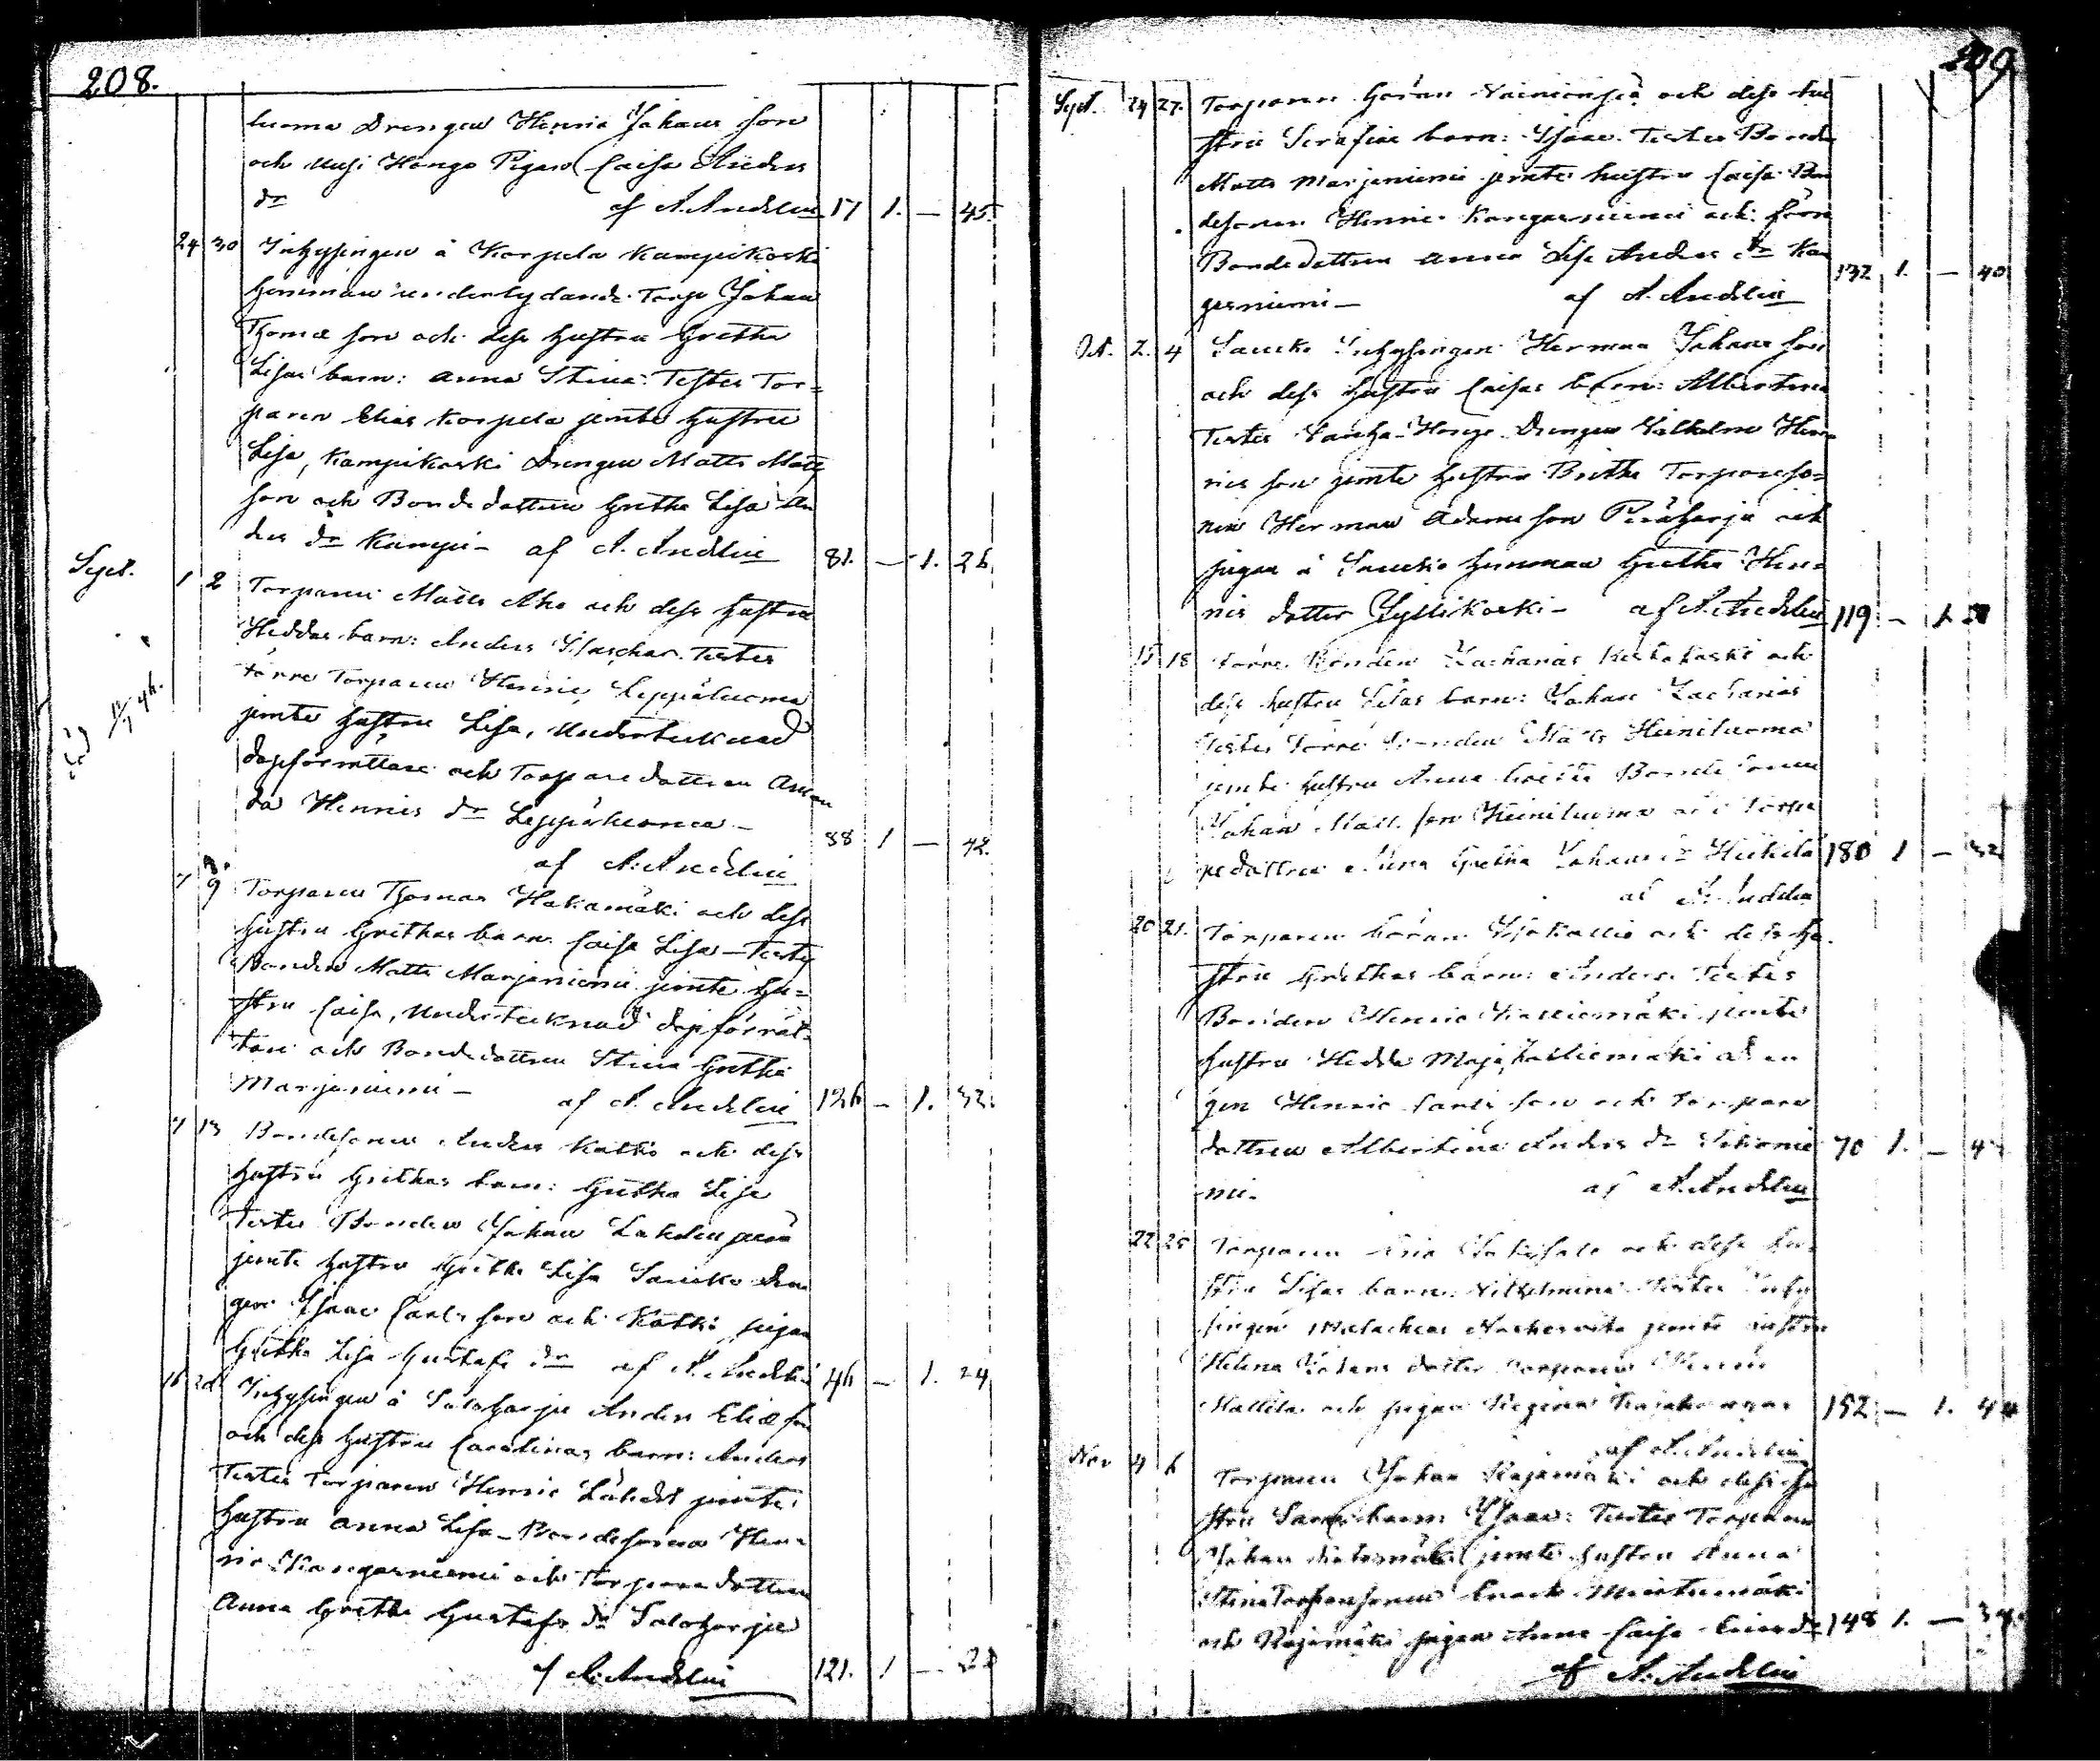 208.
luoma Drengen Henric Johans son
och Uusi Hongo Pigan Caisa Anders
dr af A. Andelin 17 1. — 45.
24 30 Inhysingen å Korpela Kampikoski
hemman underlydande Torp Johan
Thomæ son och dess hustru Gretha
Lisas barn: Anna Stina. Testes Tor-
paren Elias Korpela jemte hustru
Lisa, Kampikoski Drengen Matts Matts
son och Bondedottren Gretha Lisa An
ders dr Kampi- af A. Andelin 81. — 1. 26
Sept. 1 2 Torparen Matts Aho och dess hustru
Heddas barn: Anders. Testes
förre Torparen Henric Leppäluoma
jemte hustru Lisa, Undertecknad
dopförrättare och Torparedottren Aman
da Henrics dr Leppäluoma-
af A. Andelin 88 1 — 42.
7 9 Torparen Thomas Hakamäki och dess
hustru Grethas barn Caisa Lisa — Testes
Bonden Matts Marjeniemi jemte hu-
stru Caisa, Undertecknad dopförrät-
tare och Bondedottren Stina Gretha
Marjeniemi - af A. Andelin 126 — 1. 32.
7 13 Bondesonen Anders Katko och dess
hustru Grethas barn: Gretha Lisa
Testes Bonden Johan Lahdenperä
jemte hustru Gretha Lisa Saucko Dren
gen Isaac Carls son och Katko pigan
Gretha Lisa Gustafs dr af A. Andelin 46 — 1. 24
16 20 Inhysingen å Saloharju Anders Eliæ son
och dess hustru Carolinas barn: Anders
Testes Torparen Henric Lähdet jemte
hustru Anna Lisa — Bondesonen Hen-
ric Kangarniemi och Torparedottren
Anna Gretha Gustafs dr Saloharju
af A. Andelin 121. 1 — 28
209
Sept. 24 27. Torparen Göran Vainionpä och dess hu
stru Serafias barn: Isaac. Testes Bonden
Matts Marjeniemi jemte hustru Caisa Bon
desonen Henric Kangarniemi och förre
Bondedottren Anna Lisa Anders dr Kan
garniemi — af A. Andelin 132 1. — 40
Oct. 2. 4 Saucko Inhysingen Herman Johans son
och dess hustru Caisas barn: Albertina
Testes Vanha-Hongo Drengen Wilhelm Hen-
rics son jemte hustru Britha Torpareso-
nen Herman Adams son Peräharju och
pigan å Saucko hemman Gretha Hen-
rics dotter Jyllikoski - af A. Andelin 119 — 1.
15 18 förre Bonden Zacharias Keskikoski och
dess hustru Lisas barn: Johan Zacharias
Testes förre Bonden Matts Heiniluoma
jemte hustru Anna Gretha Bondesonen
Johan Matts son Heiniluoma och Torpa
redottren Anna Gretha Johans dr Heikkilä 180 1 — 32
af A. Andelin
20 21. Torparen Göran Isokallio och dess hu-
stru Grethas barn: Anders. Testes
Bonden Henric Kalliomäki jemte
hustru Hedda Maja, Kalliomäki dren
gen Henric Carls son och Torpare
dottren Albertina Anders dr 70 1. — 4
mi. af A. Andelin
22 25 Torparen Eric och dess hu-
stru Lisas barn: Vilhelmina Testes Inhy
singen Malachias jemte hustru
Helena Johans dotter Torparen Henric
Mattila och pigan Regina 152 — 1. 44
af A. Andelin
Nov 4 6 Torparen Johan Rajamäki och dess hu
stru Saras barn: Isaac: Testes Torparen
Johan jemte hustru Anna
Stina Torparesonen Enoch Mustamäki
och Rajamäki pigan Anna Caisa Erics dr 148 1. — 38
af A. Andelin